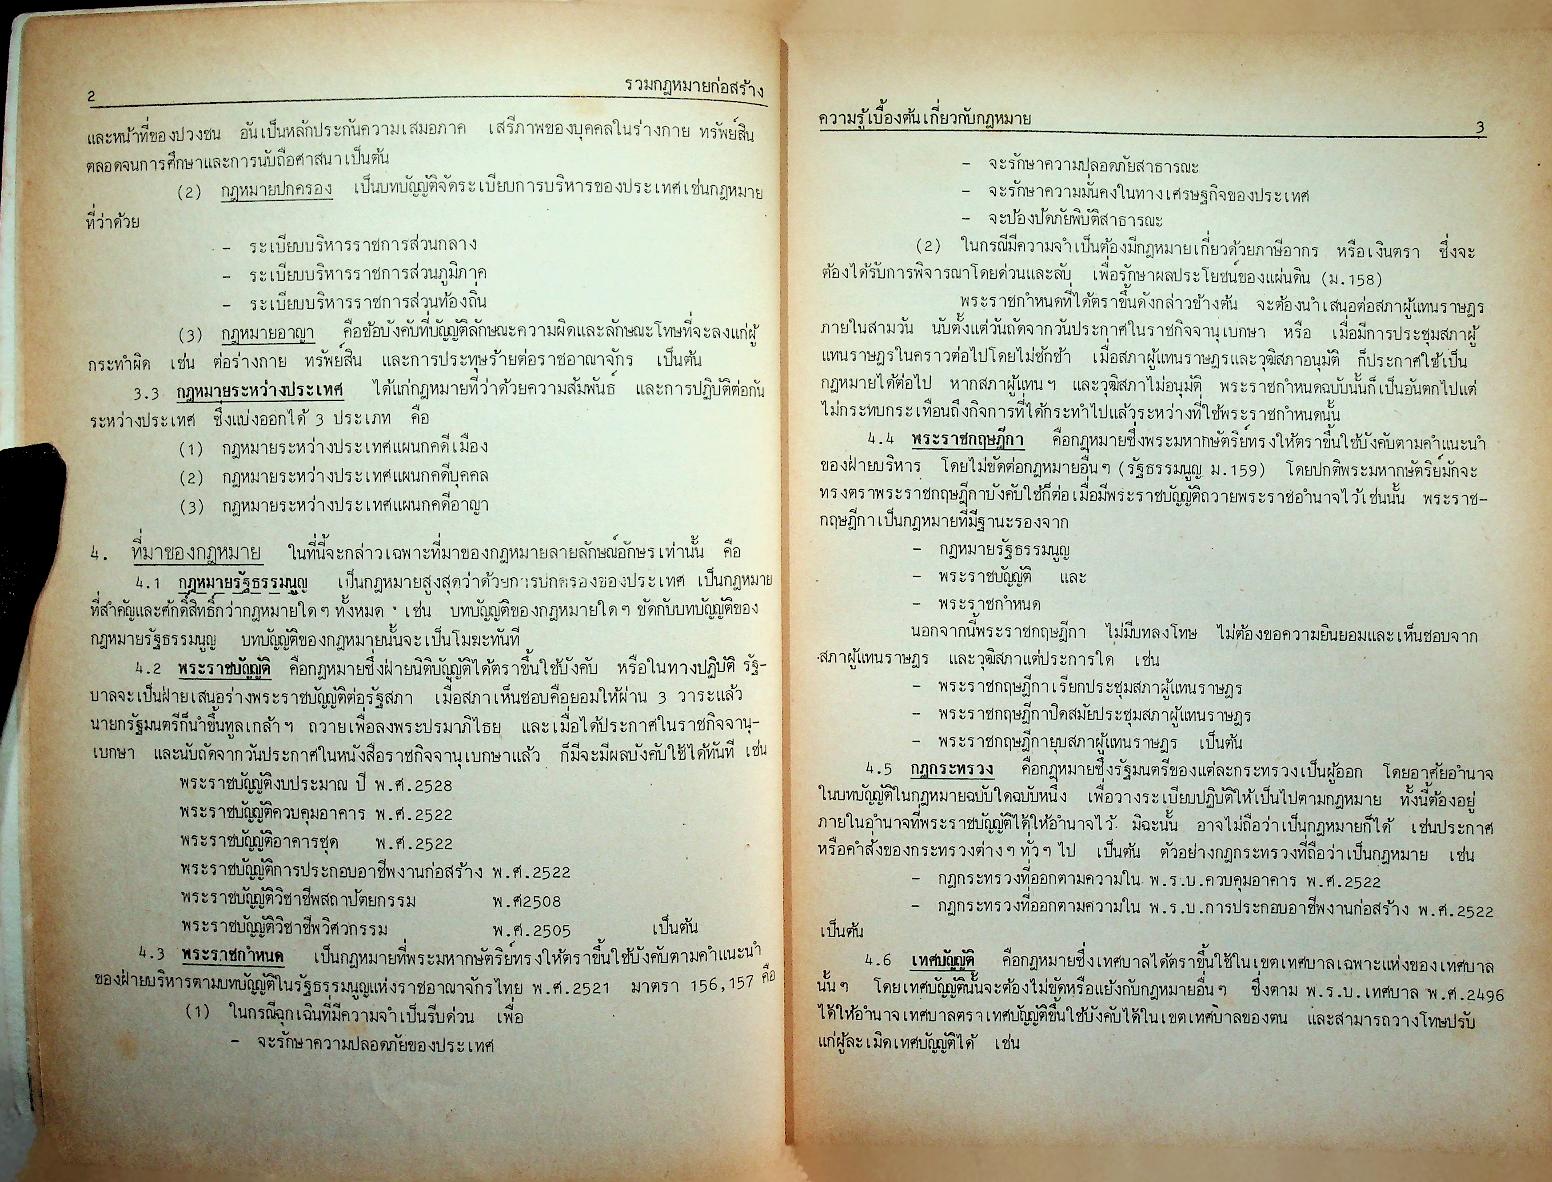 2
รวมกฎหมายก่อสร้าง
และหน้าที่ของปวงชน อันเป็นหลักประกันความเสมอภาค เสรีภาพของบุคคลในร่างกาย ทรัพย์สิน
ตลอดจนการศึกษาและการนับถือศาสนาเป็นต้น
(2) กฎหมายปกครอง เป็นบทบัญญัติจัดระเบียบการบริหารของประเทศเช่นกฎหมาย
ที่ว่าด้วย
- ระเบียบบริหารราชการส่วนกลาง
- ระเบียบบริหารราชการส่วนภูมิภาค
- ระเบียบบริหารราชการส่วนท้องถิ่น
(3) กฎหมายอาญา คือข้อบังคับที่บัญญัติลักษณะความผิดและลักษณะโทษที่จะลงแก่ผู้
กระทำผิด เช่น ต่อร่างกาย ทรัพย์สิน และการประทุษร้ายต่อราชอาณาจักร เป็นต้น
3.3 กฎหมายระหว่างประเทศ ได้แก่กฎหมายที่ว่าด้วยความสัมพันธ์ และการปฏิบัติต่อกัน
ระหว่างประเทศ ซึ่งแบ่งออกได้ 3 ประเภท คือ
(1) กฎหมายระหว่างประเทศแผนกคดีเมือง
(2) กฎหมายระหว่างประเทศแผนกคดีบุคคล
(3) กฎหมายระหว่างประเทศแผนกคดีอาญา
4. ที่มาของกฎหมาย ในที่นี้จะกล่าวเฉพาะที่มาของกฎหมายลายลักษณ์อักษรเท่านั้น คือ
4.1 กฎหมายรัฐธรรมนูญ เป็นกฎหมายสูงสุดว่าด้วยการปกครองของประเทศ เป็นกฎหมาย
ที่สำคัญและศักดิ์สิทธิ์กว่ากฎหมายใดๆทั้งหมด เช่น บทบัญญัติของกฎหมายใดๆ ขัดกับบทบัญญัติของ
กฎหมายรัฐธรรมนูญ บทบัญญัติของกฎหมายนั้นจะเป็นโมฆะทันที
4.2 พระราชบัญญัติ คือกฎหมายซึ่งฝ่ายนิติบัญญัติได้ตราขึ้นใช้บังคับ หรือในทางปฏิบัติ รัฐ-
บาลจะเป็นฝ่ายเสนอร่างพระราชบัญญัติต่อรัฐสภา เมื่อสภาเห็นชอบคือยอมให้ผ่าน 3 วาระแล้ว
นายกรัฐมนตรีก็นำขึ้นทูลเกล้าฯ ถวายเพื่อลงพระปรมาภิไธย และเมื่อได้ประกาศในราชกิจจานุ-
เบกษา และนับถัดจากวันประกาศในหนังสือราชกิจจานุเบกษาแล้ว ก็มีจะมีผลบังคับใช้ได้ทันที เช่น
พระราชบัญญัติงบประมาณ ปี พ.ศ.2528
พระราชบัญญัติควบคุมอาคาร พ.ศ.2522
พระราชบัญญัติอาคารชุด พ.ศ.2522
พระราชบัญญัติการประกอบอาชีพงานก่อสร้าง พ.ศ.2522
พระราชบัญญัติวิชาชีพสถาปัตยกรรม พ.ศ2508
พระราชบัญญัติวิชาชีพวิศวกรรม พ.ศ.2505 เป็นต้น
4.3 พระราชกำหนด เป็นกฎหมายที่พระมหากษัตริย์ทรงให้ตราขึ้นใช้บังคับตามคำแนะนำ
ของฝ่ายบริหารตามบทบัญญัติในรัฐธรรมนูญแห่งราชอาณาจักรไทย พ.ศ.2521 มาตรา 156,157 คือ
(1) ในกรณีฉุกเฉินที่มีความจำเป็นรีบด่วน เพื่อ
- จะรักษาความปลอดภัยของประเทศ
ความรู้เบื้องต้นเกี่ยวกับกฎหมาย
3
- จะรักษาความปลอดภัยสาธารณะ
- จะรักษาความมั่นคงในทางเศรษฐกิจของประเทศ
- จะป้องปัดภัยพิบัติสาธารณะ
(2) ในกรณีมีความจำเป็นต้องมีกฎหมายเกี่ยวด้วยภาษีอากร หรือเงินตรา ซึ่งจะ
ต้องได้รับการพิจารณาโดยด่วนและลับ เพื่อรักษาผลประโยชน์ของแผ่นดิน (ม.158)
พระราชกำหนดที่ได้ตราขึ้นดังกล่าวข้างต้น จะต้องนำเสนอต่อสภาผู้แทนราษฎร
ภายในสามวัน นับตั้งแต่วันถัดจากวันประกาศในราชกิจจานุเบกษา หรือ เมื่อมีการประชุมสภาผู้
แทนราษฎรในคราวต่อไปโดยไม่ชักช้า เมื่อสภาผู้แทนราษฎรและวุฒิสภาอนุมัติ ก็ประกาศใช้เป็น
กฎหมายได้ต่อไป หากสภาผู้แทนฯ และวุฒิสภาไม่อนุมัติ พระราชกำหนดฉบับนั้นก็เป็นอันตกไปแต่
ไม่กระทบกระเทือนถึงกิจการที่ได้กระทำไปแล้วระหว่างที่ใช้พระราชกำหนดนั้น
4.4 พระราชกฤษฎีกา คือกฎหมายซึ่งพระมหากษัตริย์ทรงให้ตราขึ้นใช้บังคับตามคำแนะนำ
ของฝ่ายบริหาร โดยไม่ขัดต่อกฎหมายอื่นๆ (รัฐธรรมนูญ ม.159) โดยปกติพระมหากษัตริย์มักจะ
ทรงตราพระราชกฤษฎีกาบังคับใช้ก็ต่อเมื่อมีพระราชบัญญัติถวายพระราชอำนาจไว้เช่นนั้น พระราช-
กฤษฎีกาเป็นกฎหมายที่มีฐานะรองจาก
- กฎหมายรัฐธรรมนูญ
- พระราชบัญญัติ และ
- พระราชกำหนด
นอกจากนี้พระราชกฤษฎีกา ไม่มีบทลงโทษ ไม่ต้องขอความยินยอมและเห็นชอบจาก
สภาผู้แทนราษฎร และวุฒิสภาแต่ประการใด เช่น
- พระราชกฤษฎีกาเรียกประชุมสภาผู้แทนราษฎร
- พระราชกฤษฎีกาปิดสมัยประชุมสภาผู้แทนราษฎร
- พระราชกฤษฎีกายุบสภาผู้แทนราษฎร เป็นต้น
4.5 กฎกระทรวง คือกฎหมายซึ่งรัฐมนตรีของแต่ละกระทรวงเป็นผู้ออก โดยอาศัยอำนาจ
ในบทบัญญัติในกฎหมายฉบับใดฉบับหนึ่ง เพื่อวางระเบียบปฏิบัติให้เป็นไปตามกฎหมาย ทั้งนี้ต้องอยู่
ภายในอำนาจที่พระราชบัญญัติได้ให้อำนาจไว้ มิฉะนั้น อาจไม่ถือว่าเป็นกฎหมายก็ได้ เช่นประกาศ
หรือคำสั่งของกระทรวงต่างๆทั่วๆไป เป็นต้น ตัวอย่างกฎกระทรวงที่ถือว่าเป็นกฎหมาย เช่น
- กฎกระทรวงที่ออกตามความใน พ.ร.บ.ควบคุมอาคาร พ.ศ.2522
- กฎกระทรวงที่ออกตามความใน พ.ร.บ.การประกอบอาชีพงานก่อสร้าง พ.ศ.2522
เป็นต้น
4.6 เทศบัญญัติ คือกฎหมายซึ่งเทศบาลได้ตราขึ้นใช้ในเขตเทศบาลเฉพาะแห่งของเทศบาล
นั้นๆ โดยเทศบัญญัตินั้นจะต้องไม่ขัดหรือแย้งกับกฎหมายอื่นๆ ซึ่งตาม พ.ร.บ.เทศบาล พ.ศ.2496
ได้ให้อำนาจเทศบาลตราเทศบัญญัติขึ้นใช้บังคับได้ในเขตเทศบาลของตน และสามารถวางโทษปรับ
แก่ผู้ละเมิดเทศบัญญัติได้ เช่น